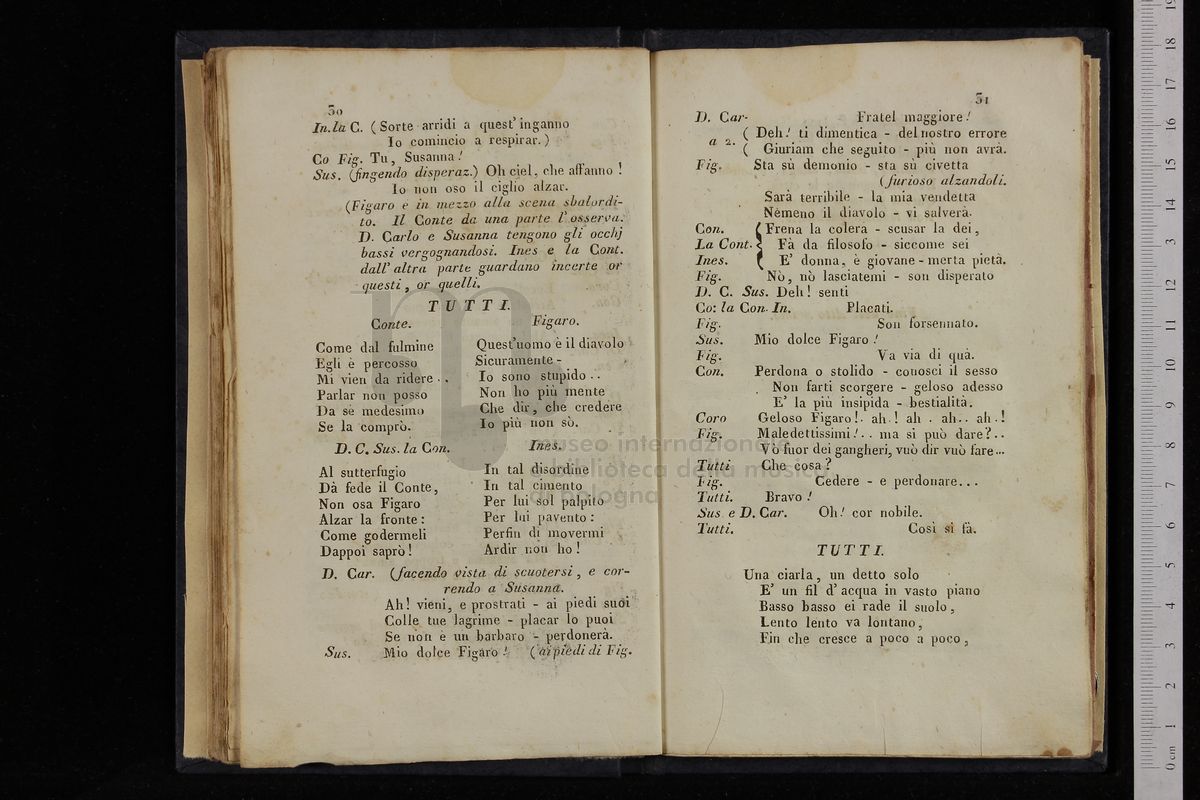 30
In.la C. (Sorte arridi a quest'inganno
Io comincio a respirar.)
Co Fig. Tu, Susanna!
Sus. (fingendo disperaz.) Oh ciel, che affanno!
Io non oso il ciglio alzar.
(Figaro è in mezzo alla scena sbalordi-
to. Il Conte da una parte l'osserva.
D. Carlo e Susanna tengono gli occhj
bassi vergognandosi. Ines e la Cont.
dall'altra parte guardano incerte or
questi, or quelli.
TUTTI.
Conte.
Come dal fulmine
Egli è percosso
Mi vien da ridere..
Parlar non posso
Da se medesimo
Se la comprò.
Figaro.
Quest'uomo è il diavolo
Sicuramente -
Io sono stupido..
Non ho più mente
Che dir, che credere
Io più non sò.
D. C. Sus. la Con.
Al sutterfugio
Dà fede il Conte,
Non osa Figaro
Alzar la fronte:
Come godermeli
Dappoi saprò!
Ines.
In tal disordine
In tal cimento
Per lui sol palpito
Per lui pavento:
Perfin di movermi
Ardir non ho!
D. Car. (facendo vista di scuotersi, e cor-
rendo a Susanna.
Ah! vieni, e prostrati - ai piedi suoi
Colle tue lagrime - placar lo puoi
Se non è un barbaro - perdonerà.
Sus. Mio dolce Figaro! (ai piedi di Fig.
31
D. Car. Fratel maggiore!
a 2. ( Deh! ti dimentica - del nostro errore
( Giuriam che seguito - più non avrà.
Fig. Sta sù demonio - sta sù civetta
(furioso alzandoli.
Sarà terribile - la mia vendetta
Nemeno il diavolo - vi salverà.
Con. { Frena la colera - scusar la dei,
La Cont. { Fà da filosofo - siccome sei
Ines. { E' donna, è giovane - merta pietà.
Fig. Nò, nò lasciatemi - son disperato
D. C. Sus. Deh! senti
Co: la Con. In. Placati.
Fig. Son forsennato.
Sus. Mio dolce Figaro!
Fig. Va via di quà.
Con. Perdona o stolido - conosci il sesso
Non farti scorgere - geloso adesso
E' la più insipida - bestialità.
Coro Geloso Figaro!. ah.! ah . ah.. ah.!
Fig. Maledettissimi!.. ma si può dare?..
Vò fuor dei gangheri, vuò dir vuò fare...
Tutti Che cosa?
Fig. Cedere - e perdonare...
Tutti. Bravo!
Sus e D. Car. Oh! cor nobile.
Tutti. Così si fà.
TUTTI.
Una ciarla, un detto solo
E' un fil d'acqua in vasto piano
Basso basso ei rade il suolo,
Lento lento va lontano,
Fin che cresce a poco a poco,
museo internazionale
biblioteca della musica
di bologna
0 cm 1 2 3 4 5 6 7 8 9 10 11 12 13 14 15 16 17 18 19